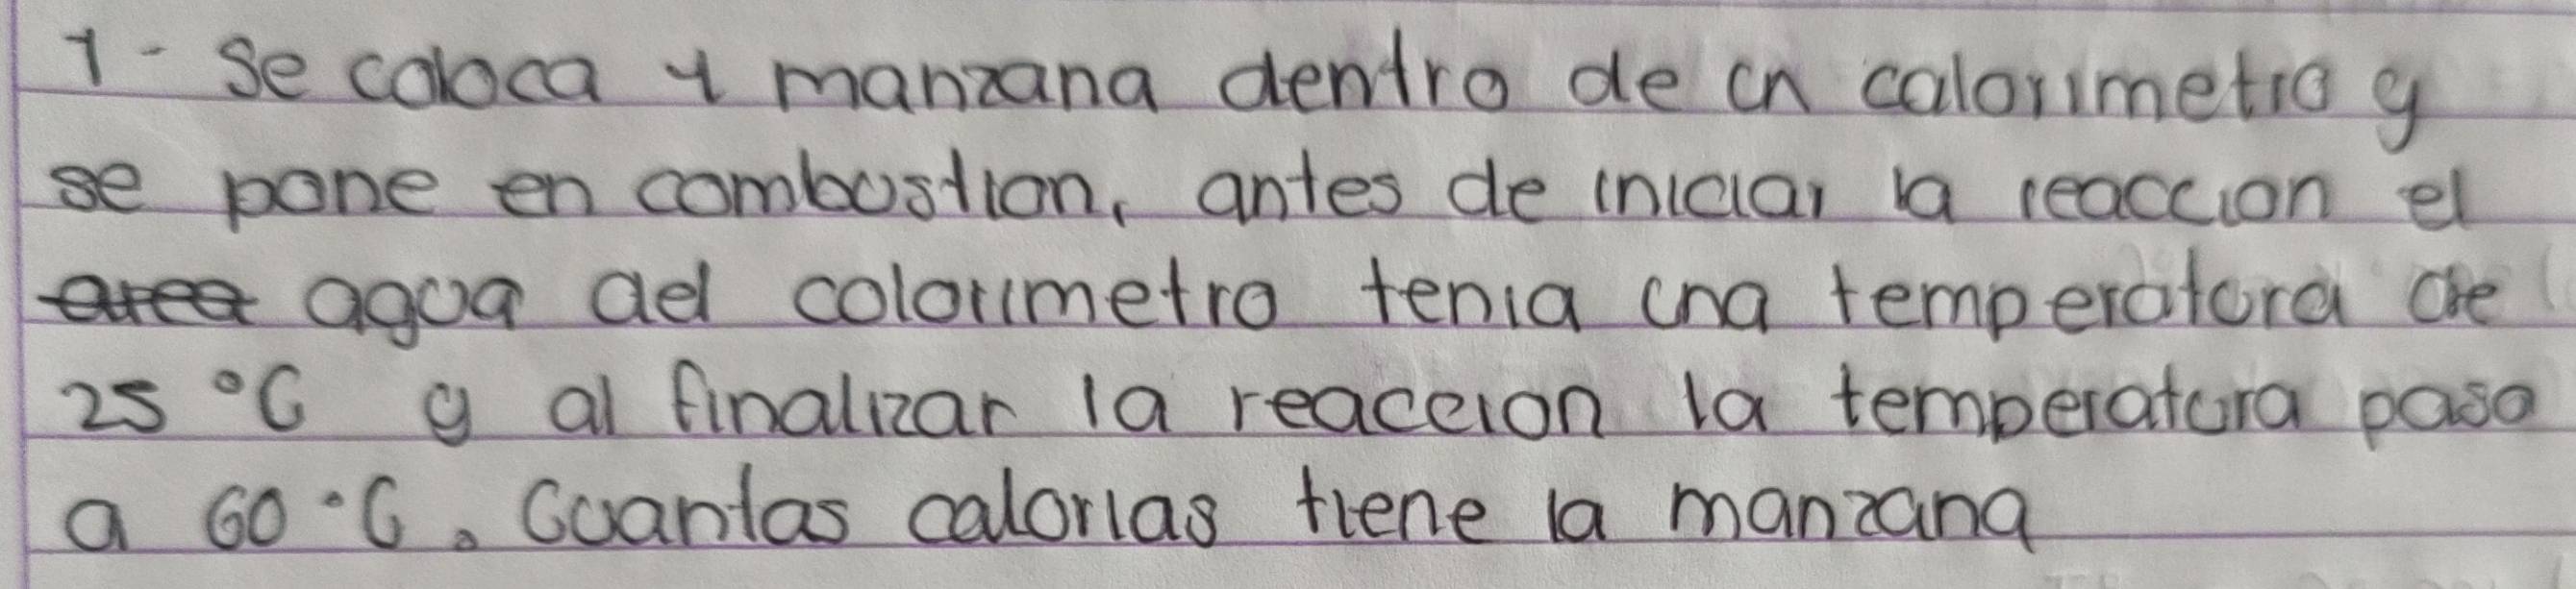 1- Se coloca 1 manzana dentro de un calorimetro y
se pone en combustion, antes de iniciar la reaccion el
area agua del colorimetro tenia una temperatura de
25 °C y al finalizar la reaccion la temperatura paso
a 60 °C. Cuantas calorias tiene la manzana